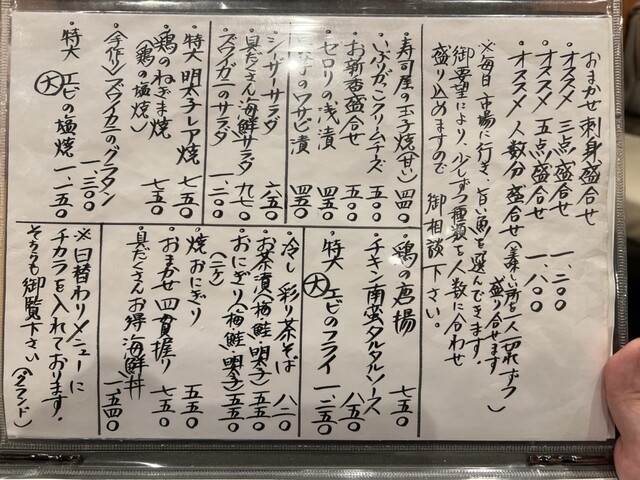 おまかせ刺身盛合せ
・オススメ 三点盛合せ 一、二〇〇
・オススメ 五点盛合せ 一、八〇〇
・オススメ 人数分 盛合せ（美味しい所を一人一切れずつ盛り合せます）
※毎日市場に行き、旨い魚を選んできます。
御要望により、少しずつ種類を人数に合わせ
盛り込めますので 御相談下さい。
・寿司屋の玉子焼（甘い） 四四〇
・いぶりがっこクリームチーズ 五〇〇
・お新香盛合せ 五〇〇
・セロリの浅漬 四五〇
ワサビ漬 四五〇
・シーザーサラダ 六五〇
・具だくさん海鮮サラダ 九七〇
・ズワイガニのサラダ 一、二〇〇
・特大 明太子レア焼 七五〇
・鶏のねぎま焼 七五〇
（鶏の塩焼）
・（手作り）ズワイガニのグラタン 一、三〇〇
・特大 大 エビの塩焼 一、一五〇
・鶏の唐揚 七五〇
・チキン南蛮タルタルソース 八五〇
・特大 大 エビのフライ 一、二五〇
・冷し彩り茶そば 八二〇
・お茶漬（梅・鮭・明太子） 五五〇
・おにぎり（梅・鮭・明太子） 五五〇
（二ケ）
・焼おにぎり 五五〇
・おまかせ四貫握り 七五〇
・具だくさんお得海鮮丼 一、五四〇
※日替わりメニューに
チカラを入れております。
そちらも御覧下さい。
（グランド）